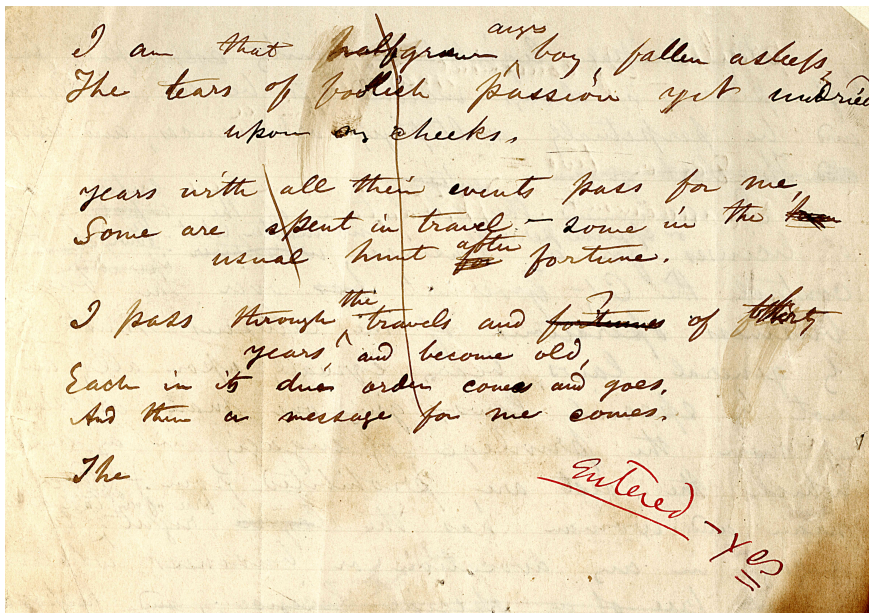 angry
I am that halfgrown boy fallen asleep,
The tears of foolish passion yet undried
upon my cheeks.
years with all their events pass for me,
Some are spent in travel – some in the
usual hunt after for fortune.
I pass through the travels and fortunes ? of thirty
years and become old,
Each in its due order comes and goes,
And then a message for me comes.
The
Entered – Yes